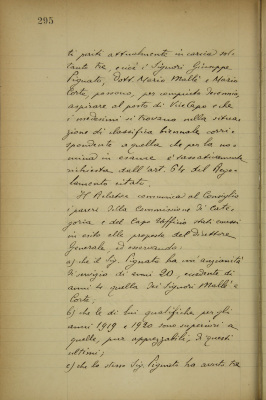 295
ti periti attualmente in carica sol-
tanto tre, cioè i Signori Giuseppe
Pignata, Dott. Mario Mallè e Mario
Corte, possono, per compiuto decennio,
aspirare al posto di ViceCapo e che
i medesimi si trovano nella situa-
zione di classifica biennale corri-
spondente a quella che per la no-
mina in esame è tassativamente
richiesta dall'art. 64 del Rego-
lamento citato.
Il Relatore comunica al Consiglio
i pareri della Commissione di Cate-
goria e del Capo Ufficio del emessi
in esito alle proposte del Direttore
Generale ed osservando:
a) che il Sig. Pignata ha un'anzianità
di servizio di anni 20, eccedente di
anni 4 quella dei Signori Mallè e
Corte;
b) che le di lui qualifiche per gli
anni 1919 e 1920 sono superiori a
quelle, pure apprezzabili, di questi
ultimi;
c) che lo stesso Sig. Pignata ha avuto tre